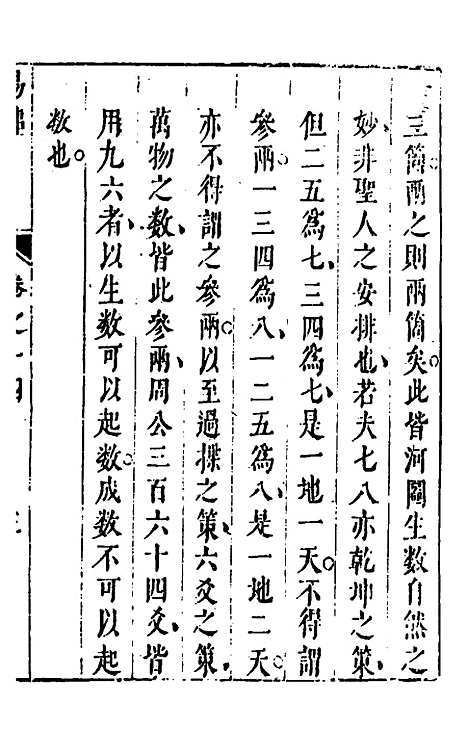 三箇兩之則兩箇矣此皆河圖生數自然之
妙非聖人之安排也若夫七八亦乾坤之策
但二五爲七三四爲七是一地一天不得謂
參兩一三四爲八一二五爲八是一地二天
亦不得謂之參兩以至過揲之策六爻之策
萬物之數皆此參兩周公三百六十四爻皆
用九六者以生數可以起數成數不可以起
數也